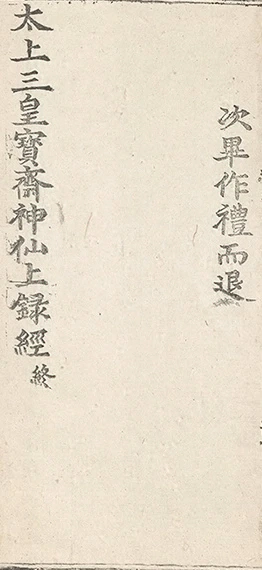 次畢作禮而退
太上三皇寶齋神仙上録經終